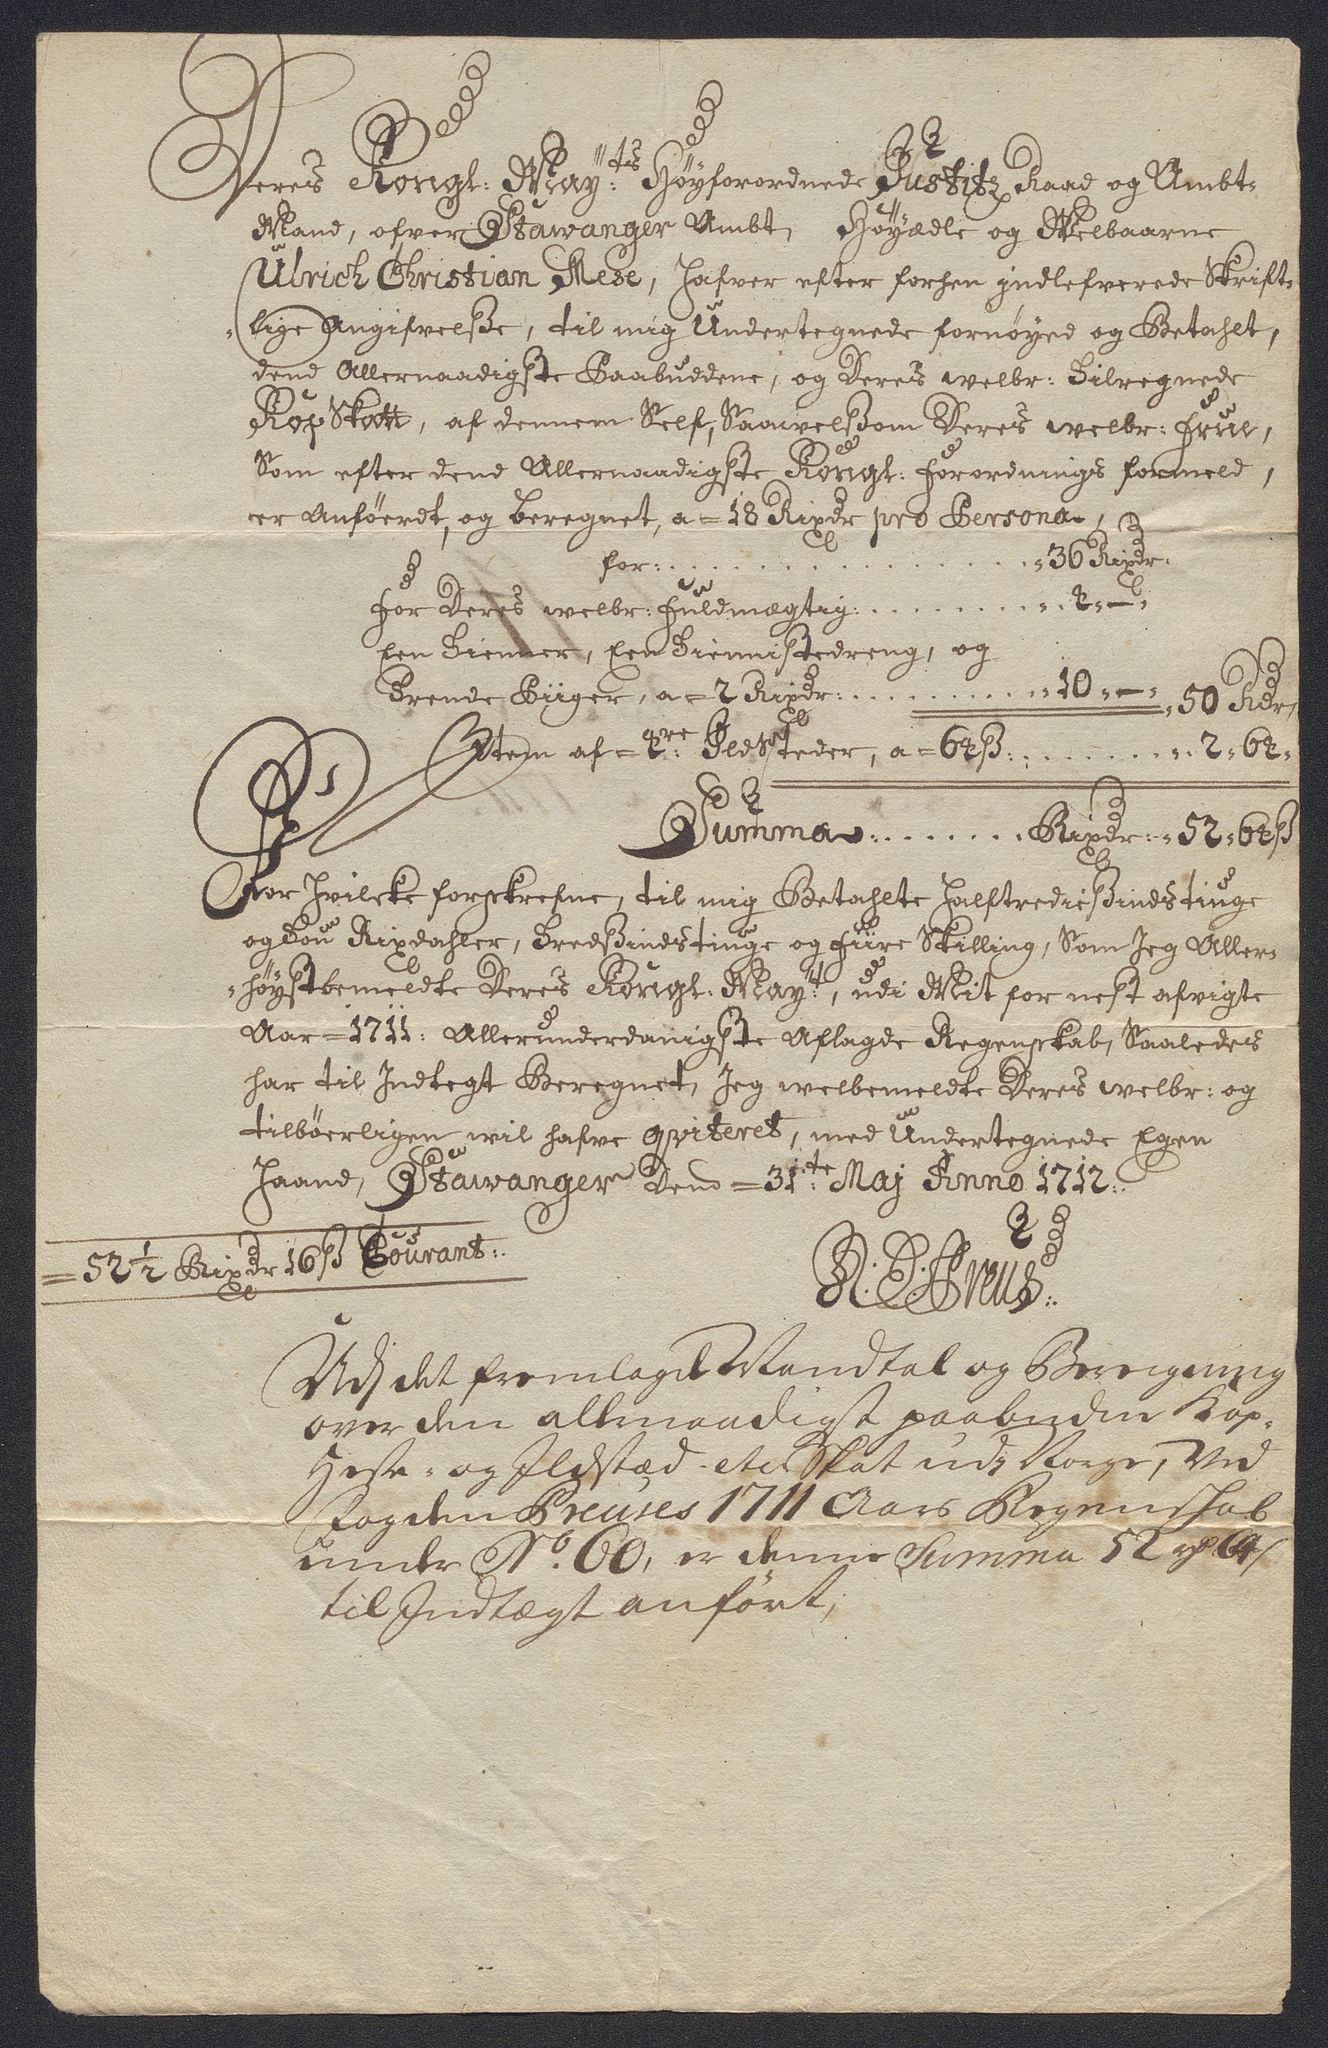 Deres Kongl: May:ts Höyforordnede Justitz Raad og Ambt-
Mand, ofver Stawanger Ambt, Höyædle og Welbaarne
Ulrich Christian Nese, hafver efter forhen jndlefverede Skrift-
-lige Angifvelße, til mig Undertegnede fornøyed og Betahlt,
dend Allernaadigste Paabuddene, og Deres welbr: Tilregnede
Kop Skatt, af dennem Self, Saawelßom Deres welbr: Frue,
Som efter dend Allernaadigste Kongl: Forordnings formeld,
er Anföerdt, og beregnet, a = 18 Rixdr pro Persona,
for: . . . . . . . . . . . . . . . . „ 36 Rixdr.
For Deres welbr: Fuldmægtig: . . . . . . . . „ . 2 „ — „
Een Tienner, Een Tiennistedreng, og
Trende Piiger, a = 2 Rixdr: . . . . . . . . . „ 10 „ — „ „ 50 Rdr,
Item af = 4re: Ildsteder, a = 64ß: . . . . . . . „ . 2 „ 64 „
Summa: . . . . . . . Rixdr: „ 52 „ 64ß
For hvilcke forskrefne, til mig Betahlte halftredießindstiuge
og Tou Rixdahler, Tredßindstiuge og Fiire Skilling, Som Jeg Aller-
-höystbemeldte Deres Kongl: May:t, udi Mit for nest afvigte
Aar = 1711: Allerunderdanigste Aflagde Regenskab, Saaledes
har til Indtegt Beregnet, Jeg welbemeldte Deres welbr: og
tilböerligen wil hafve qviteret, med Undertegnede Egen
Haand, Stawanger Dend = 31:te Maj Anno 1712:.
= 52 1/2 Rixdr 16ß Courant:.
N: P: Preus:.
Udj det fremlagde Mandtal og Beregning
over den allernaadigst paabudne Kop-
Heste- og Ildstæd- etc Skat udj Norge, Ved
Fogden Preuses 1711 Aars Regenskab
under No. 60, er denne Summa 52 rd 64 ß
til Indtægt anfört,